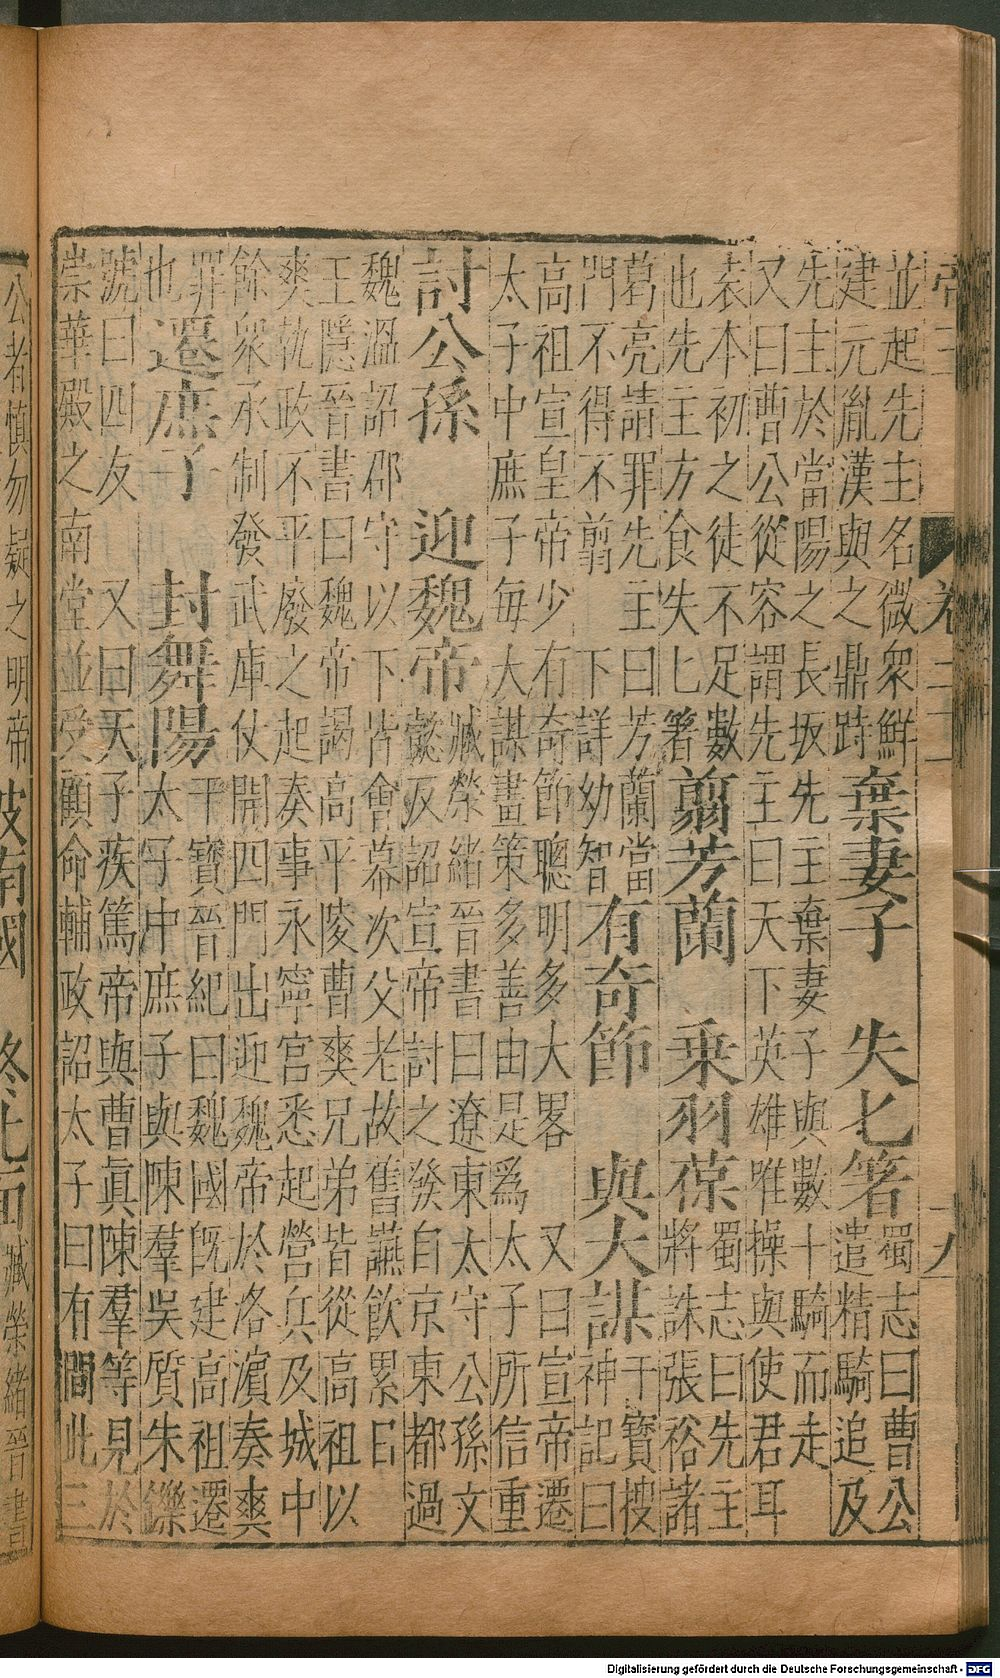 帝三 卷二二 九
並起先主名微眾鮮
建元胤漢與之鼎跱
棄妻子 失匕箸
蜀志曰曹公
遣精騎追及
先主於當陽之長坂先主棄妻子與數十騎而走
又曰曹公從容謂先主曰天下英雄唯操與使君耳
袁本初之徒不足數
也先主方食失匕箸
翦芳蘭 乗羽葆
蜀志曰先主
將誅張裕諸
葛亮請罪先主曰芳蘭當
門不得不翦 下詳幼智
有奇節 與大謀
干寶搜
神記曰
高祖宣皇帝少有奇節聰明多大畧 又曰宣帝遷
太子中庶子毎大謀畫策多善由是爲太子所信重
討公孫 迎魏帝
臧榮緒晉書曰遼東太守公孫文
懿反詔宣帝討之發自京東都過
魏溫詔郡守以下皆會幕次父老故舊讌飲累日
王隱晉書曰魏帝謁高平陵曹爽兄弟皆從高祖以
爽執政不平廢之起奏事永寧宮悉起營兵及城中
餘眾承制發武庫仗開四門出迎魏帝於洛濵奏爽
罪
也
遷庶子 封舞陽
干寶晉紀曰魏國旣建高祖遷
太子中庶子與陳羣吳質朱鑠
號曰四友 又曰天子疾篤帝與曹眞陳羣等見於
崇華殿之南堂並受顧命輔政詔太子曰有間此三
公者慎勿疑之明帝
被南國 終北面
臧榮緒晉書
Digitalisierung gefördert durch die Deutsche Forschungsgemeinschaft - DFG